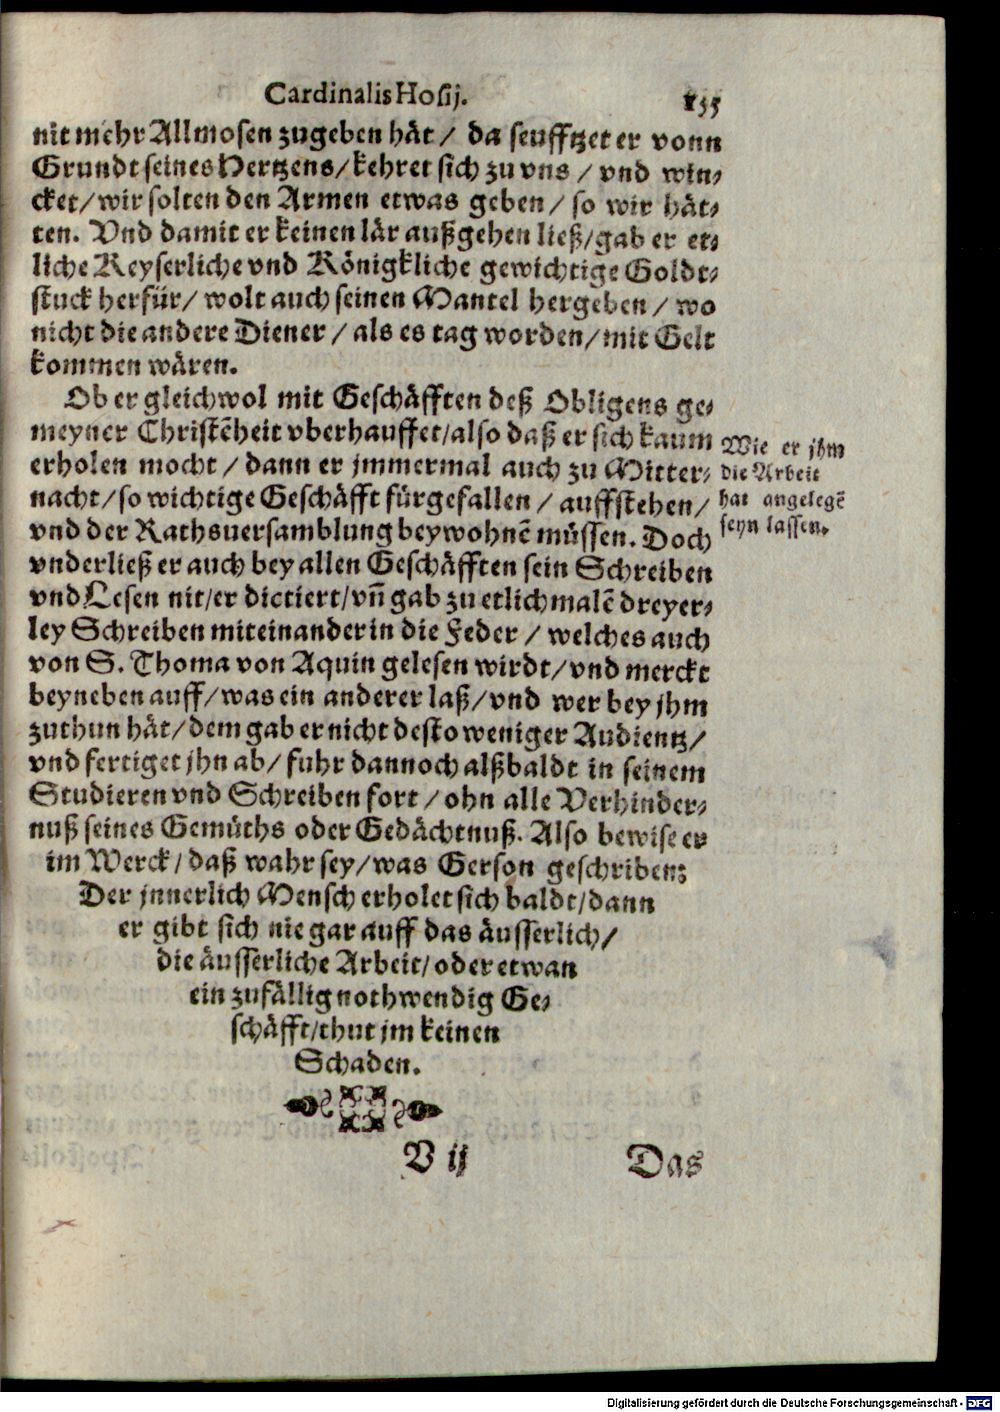 Cardinalis Hosij. 155
nit mehr Allmosen zugeben hät / da seufftzet er vonn
Grundt seines Hertzens / kehret sich zu vns / vnd win-
cket / wir solten den Armen etwas geben / so wir hät-
ten. Vnd damit er keinen lär außgehen ließ / gab er et-
liche Keyserliche vnd Königkliche gewichtige Goldt-
stuck herfür / wolt auch seinen Mantel hergeben / wo
nicht die andere Diener / als es tag worden / mit Gelt
kommen wären.
Ob er gleichwol mit Geschäfften deß Obligens ge-
meyner Christēheit vberhauffet / also daß er sich kaum
erholen mocht / dann er jmmermal auch zu Mitter-
nacht / so wichtige Geschäfft fürgefallen / auffstehen /
vnd der Rathsuersamblung beywohnē müssen. Doch
vnderließ er auch bey allen Geschäfften sein Schreiben
vnd Lesen nit / er dictiert / vn̄ gab zu etlich malē dreyer-
ley Schreiben miteinander in die Feder / welches auch
von S. Thoma von Aquin gelesen wirdt / vnd merckt
beyneben auff / was ein anderer laß / vnd wer bey jhm
zuthun hät / dem gab er nicht desto weniger Audientz /
vnd fertiget jhn ab / fuhr dannoch alßbaldt in seinem
Studieren vnd Schreiben fort / ohn alle Verhinder-
nuß seines Gemüths oder Gedächtnuß. Also bewise er
im Werck / daß wahr sey / was Gerson geschriben:
Der jnnerlich Mensch erholet sich baldt / dann
er gibt sich nie gar auff das äusserlich /
die äusserliche Arbeit / oder etwan
ein zufällig nothwendig Ge-
schäfft / thut jm keinen
Schaden.
Wie er jhm
die Arbeit
hat angelegē
seyn lassen.
V ij Das
Digitalisierung gefördert durch die Deutsche Forschungsgemeinschaft - DFG